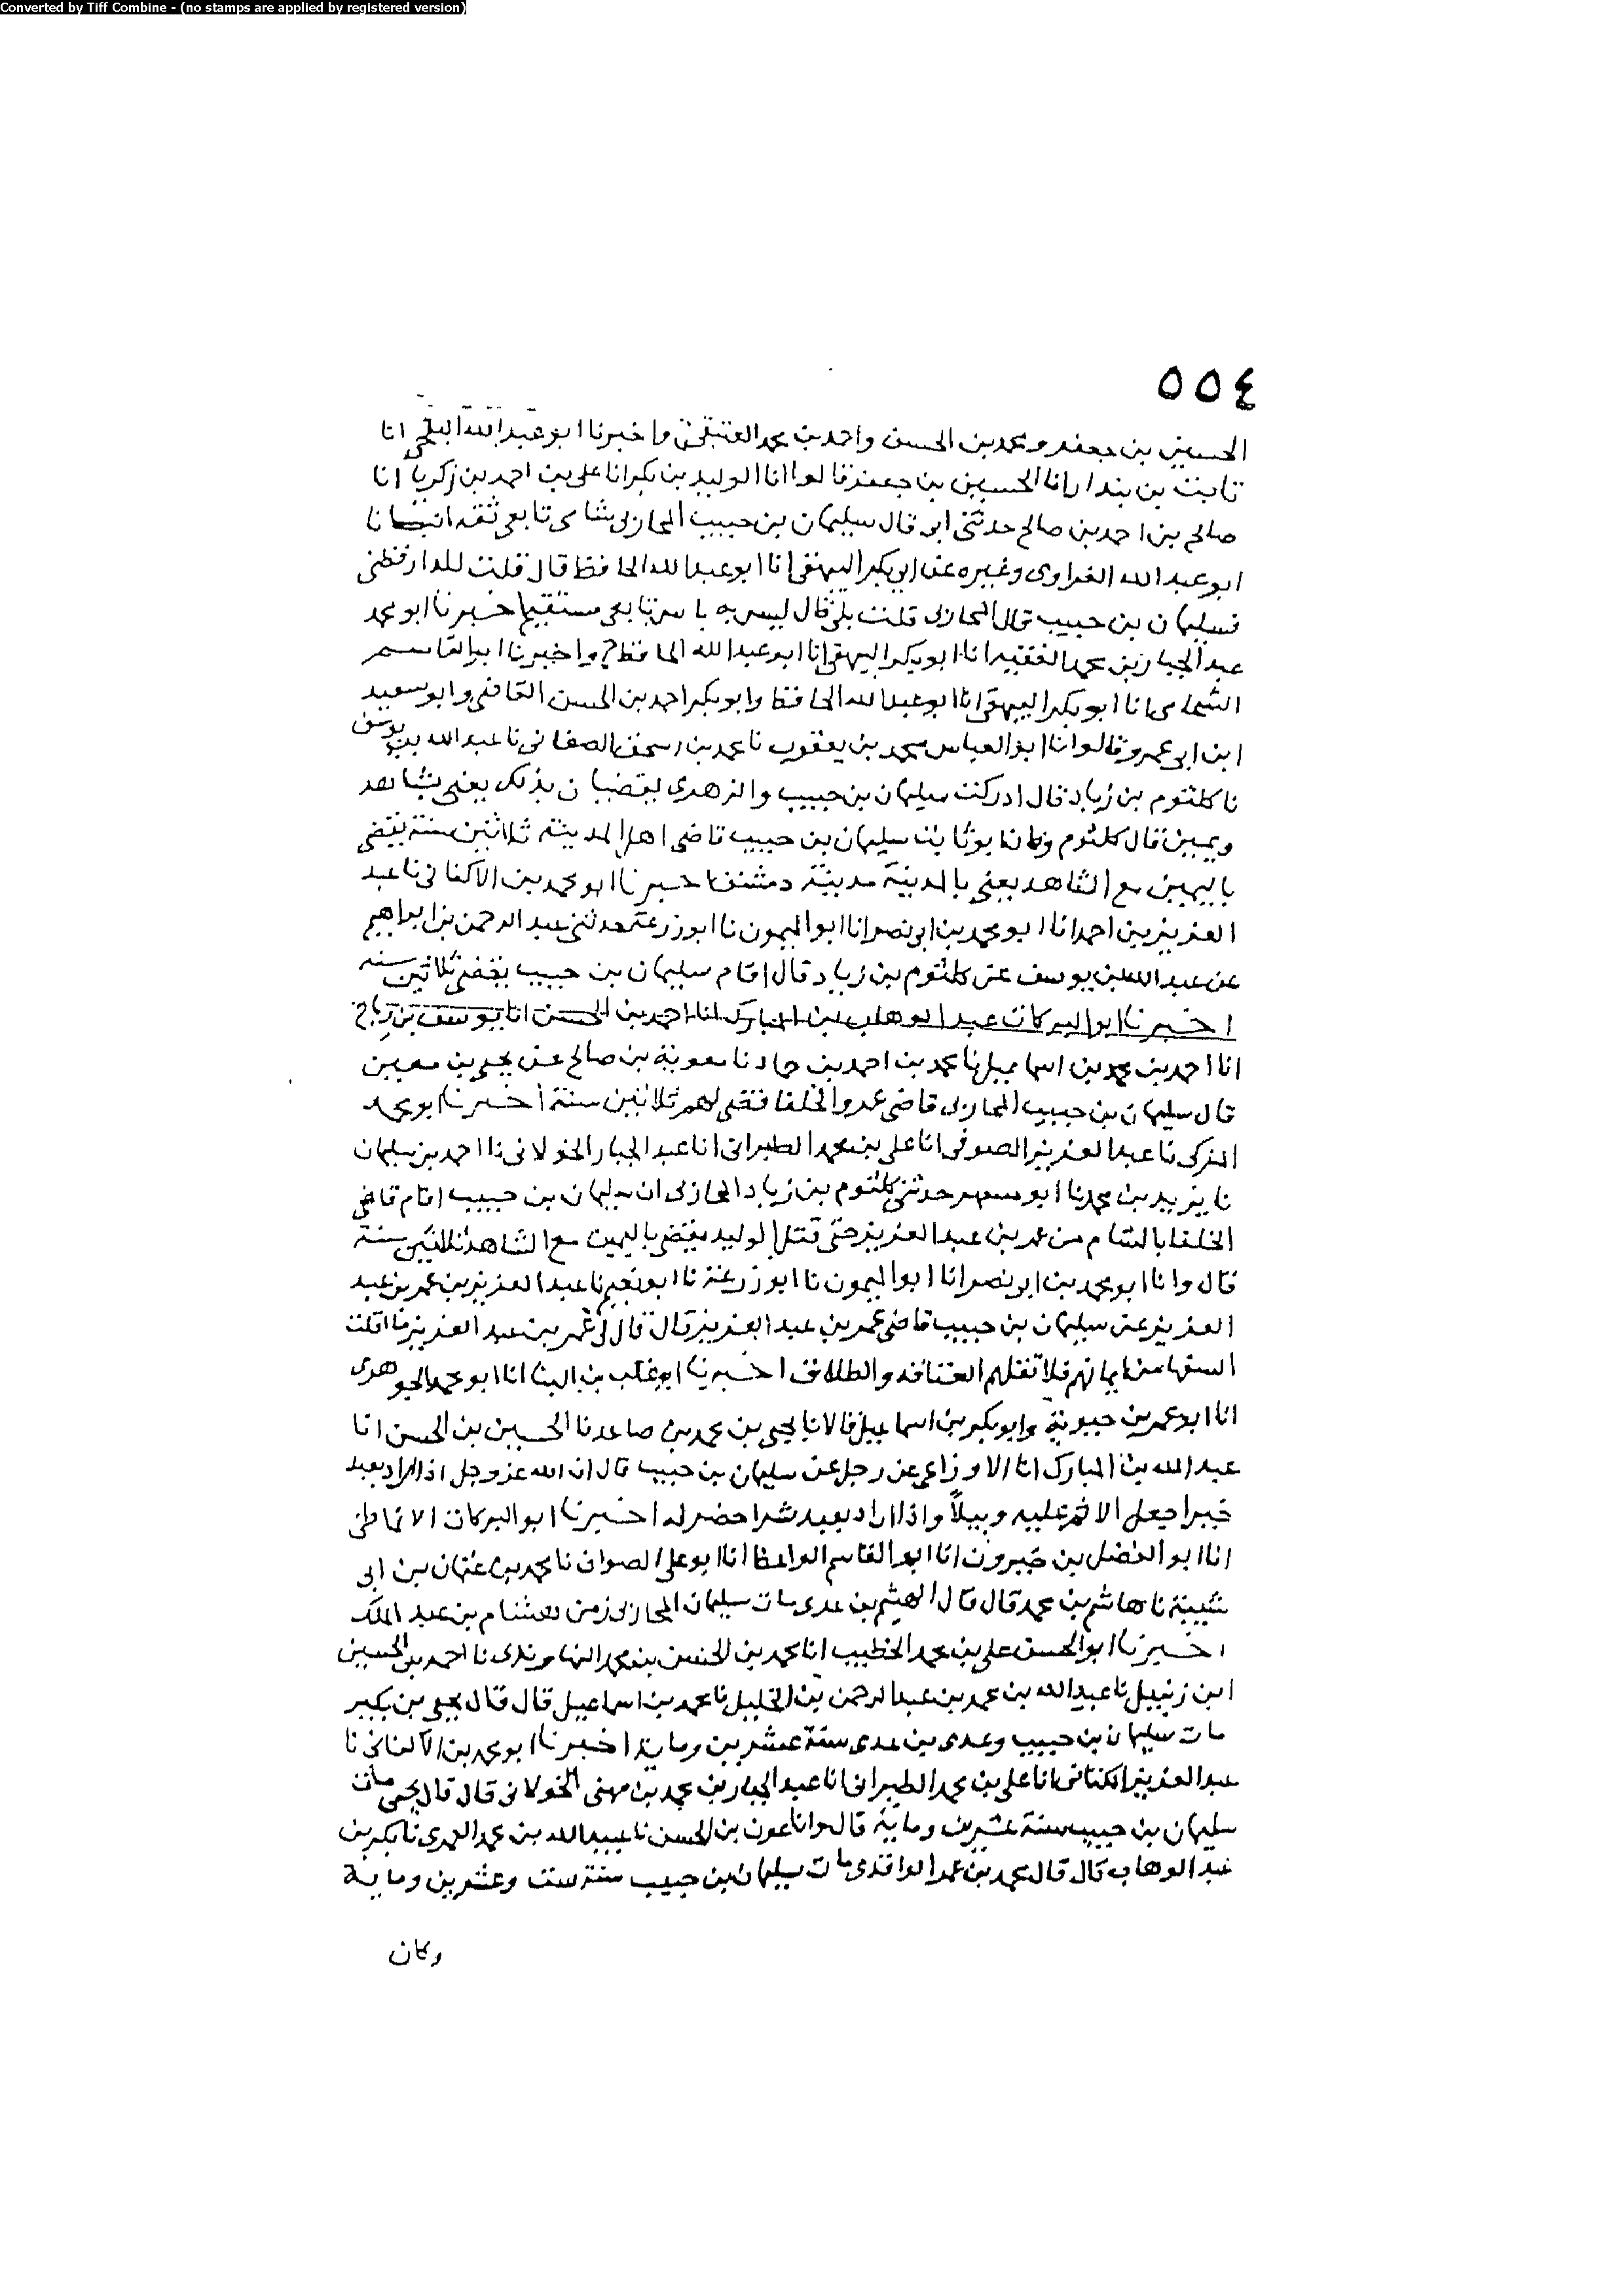 Converted by Tiff Combine - (no stamps are applied by registered version)
٥٥٤
الحسين بن جعفر ومحمد بن الحسن واحمد بن محمد العتيقي واخبرنا ابو عبد الله البلخي انا
ثابت بن بندار انا الحسين بن جعفر قالوا انا الوليد بن بكر انا علي بن احمد بن زكريا انا
صالح بن احمد بن صالح حدثني ابي قال سليمان بن حبيب المحاربي شامي تابعي ثقه
ابو عبد الله الفراوي وغيره عن ابي بكر البيهقي انا ابو عبد الله الحافظ قال قلت للدارقطني
فسليمان بن حبيب قال المحاربي قلت بلى قال ليس به باس تابعي مستقيم اخبرنا ابو محمد
عبد الجبار بن محمد الفقيه انا ابو بكر البيهقي انا ابو عبد الله الحافظ ح واخبرنا ابو القاسم
الشحامي انا ابو بكر البيهقي انا ابو عبد الله الحافظ وابو بكر احمد بن الحسن القاضي وابو سعيد
ابن ابي عمرو قالوا انا ابو العباس محمد بن يعقوب نا محمد بن اسحق الصغاني نا عبد الله بن يوسف
نا كلثوم بن زياد قال ادركت سليمان بن حبيب والزهري يقضيان بذلك يعني بشاهد
ويمين قال كلثوم وكان ابو ثابت سليمان بن حبيب قاضي اهل المدينة ثلاثين سنة يقضي
باليمين مع الشاهد يعني بالمدينة مدينة دمشق اخبرنا ابو محمد بن الاكفاني نا عبد
العزيز بن احمد انا ابو محمد بن ابي نصر انا ابو الميمون نا ابو زرعة حدثني عبد الرحمن بن ابراهيم
عن عبد الله بن يوسف عن كلثوم بن زياد قال اقام سليمان بن حبيب يقضي ثلاثين سنه
اخبرنا ابو البركات عبد الوهاب بن المبارك انا احمد بن الحسن انا يوسف بن رباح
انا احمد بن محمد بن اسماعيل نا محمد بن احمد بن حماد نا معوية بن صالح عن يحيى بن معين
قال سليمان بن حبيب المحاربي قاضي عمر والخلفا فقضى لهم ثلاثين سنة اخبرنا ابو محمد
المزكي نا عبد العزيز الصوفي انا علي بن محمد الطبراني انا عبد الجبار الخولاني نا احمد بن سليمان
نا يزيد بن محمد نا ابو مسهر حدثني كلثوم بن زياد المحاربي ان سليمان بن حبيب اقام قاضي
الخلفا بالشام من عمر بن عبد العزيز حتى قتل الوليد يقضي باليمين مع الشاهد ثلاثين سنة
قال وانا ابو محمد بن ابي نصر انا ابو الميمون نا ابو زرعة نا ابو نعيم نا عبد العزيز بن عمر بن عبد
العزيز عن سليمان بن حبيب قاضي عمر بن عبد العزيز قال قال لي عمر بن عبد العزيز ما اقلت
السفها من ايمانهم فلا تقلهم العتاقه والطلاق اخبرنا ابو غالب بن البنا انا ابو محمد الجوهري
انا ابو عمر بن حيوية وابو بكر بن اسماعيل قالا نا يحيى بن محمد بن صاعد نا الحسين بن الحسن انا
عبد الله بن المبارك انا الاوزاعي عن رجل عن سليمان بن حبيب قال ان الله عز وجل اذا اراد بعبد
خيرا جعل الاثم عليه وبيلاً واذا اراد بعبد شرا حضر له اخبرنا ابو البركات الانماطي
انا ابو الفضل بن خيرون انا ابو القاسم الواعظ انا ابو علي الصواف نا محمد بن عثمان بن ابي
شيبة نا هاشم بن محمد قال قال الهيثم بن عدي مات سليمان المحاربي زمن هشام بن عبد الملك
اخبرنا ابو الحسن علي بن محمد الخطيب انا محمد بن الحسن بن محمد النهاوندي نا احمد بن الحسين
ابن زنبيل نا عبد الله بن محمد بن عبد الرحمن بن الخليل نا محمد بن اسماعيل قال قال يحيى بن بكير
مات سليمان بن حبيب وعدي بن عدي سنة عشرين وماية اخبرنا ابو محمد بن الاكفاني نا
عبد العزيز الكتاني انا علي بن محمد الطبراني انا عبد الجبار بن محمد بن مهنى الخولاني قال قال يحيى مات
سليمان بن حبيب سنة عشرين وماية قال وانا عون بن الحسن نا عبيد الله بن محمد العمري نا بكر بن
عبد الوهاب قال قال محمد بن عمر الواقدي مات سليمان بن حبيب سنة ست وعشرين وماية
وكان